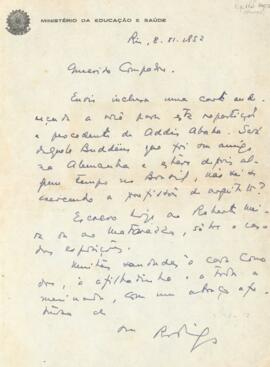 MINISTÉRIO DA EDUCAÇÃO E SAÚDE
Rio, 8. XI. 1952
Querido Compadre.
Envio inclusa uma carta ende-
reçada a você para esta repartição
e procedente de Addis Abeba. Será
daquele Buddeüs que foi um amigo
na Alemanha e esteve depois al-
gum tempo no Brasil, não sei se
exercendo a profissão de arquiteto?
Escrevo hoje ao Roberto
ou ao Matarazzo, sobre o caso
das exposições.
Muitas saudades à cara Coma-
dre, à afilhadinha e a toda a
meninada, com um abraço afe-
tuoso do
seu Rodrigo